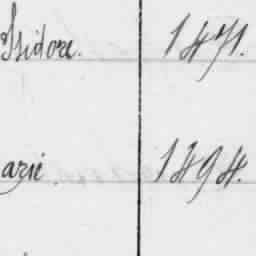 Isidore. 1471.
arie 1494.